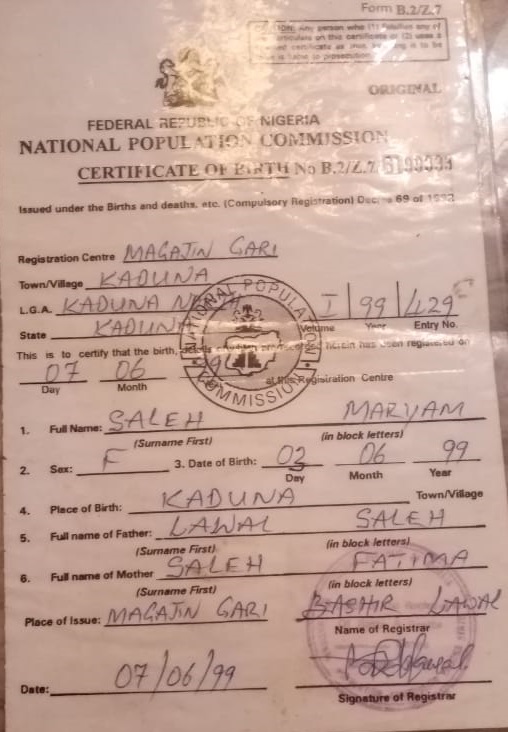 Form B.2/Z.7
Any person who (1) falsifies any of
particulars on this certificate or (2) uses a
certificate as true, is to be
liable to prosecution.
ORIGINAL
FEDERAL REPUBLIC OF NIGERIA
NATIONAL POPULATION COMMISSION
CERTIFICATE OF BIRTH No B.2/Z.7
Issued under the Births and deaths, etc. (Compulsory Registration) Decree 69 of 1992
Registration Centre MAGAJIN GARI
Town/Village KADUNA
L.G.A. KADUNA I 99 429
State KADUNA Volume Year Entry No.
This is to certify that the birth, herein has been registered on
07 06 at this Registration Centre
Day Month
NATIONAL POPULATION COMMISSION
1. Full Name: SALEH MARYAM
(Surname First) (in block letters)
2. Sex: F 3. Date of Birth: 03 06 99
Day Month Year
4. Place of Birth: KADUNA Town/Village
5. Full name of Father: LAWAL SALEH
(Surname First) (in block letters)
6. Full name of Mother SALEH FATIMA
(Surname First) (in block letters)
Place of Issue: MAGAJIN GARI BASHIR LAWAL
Name of Registrar
Date: 07/06/99
Signature of Registrar